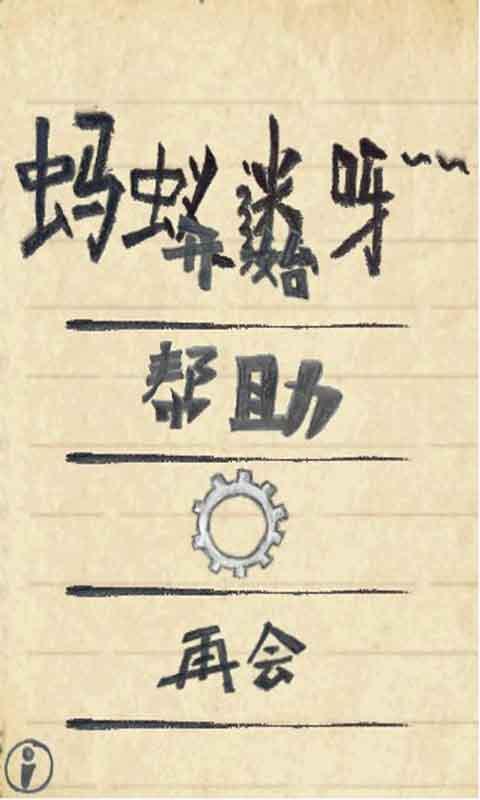 蚂蚁迷呀~~
开始
帮助
再会
i